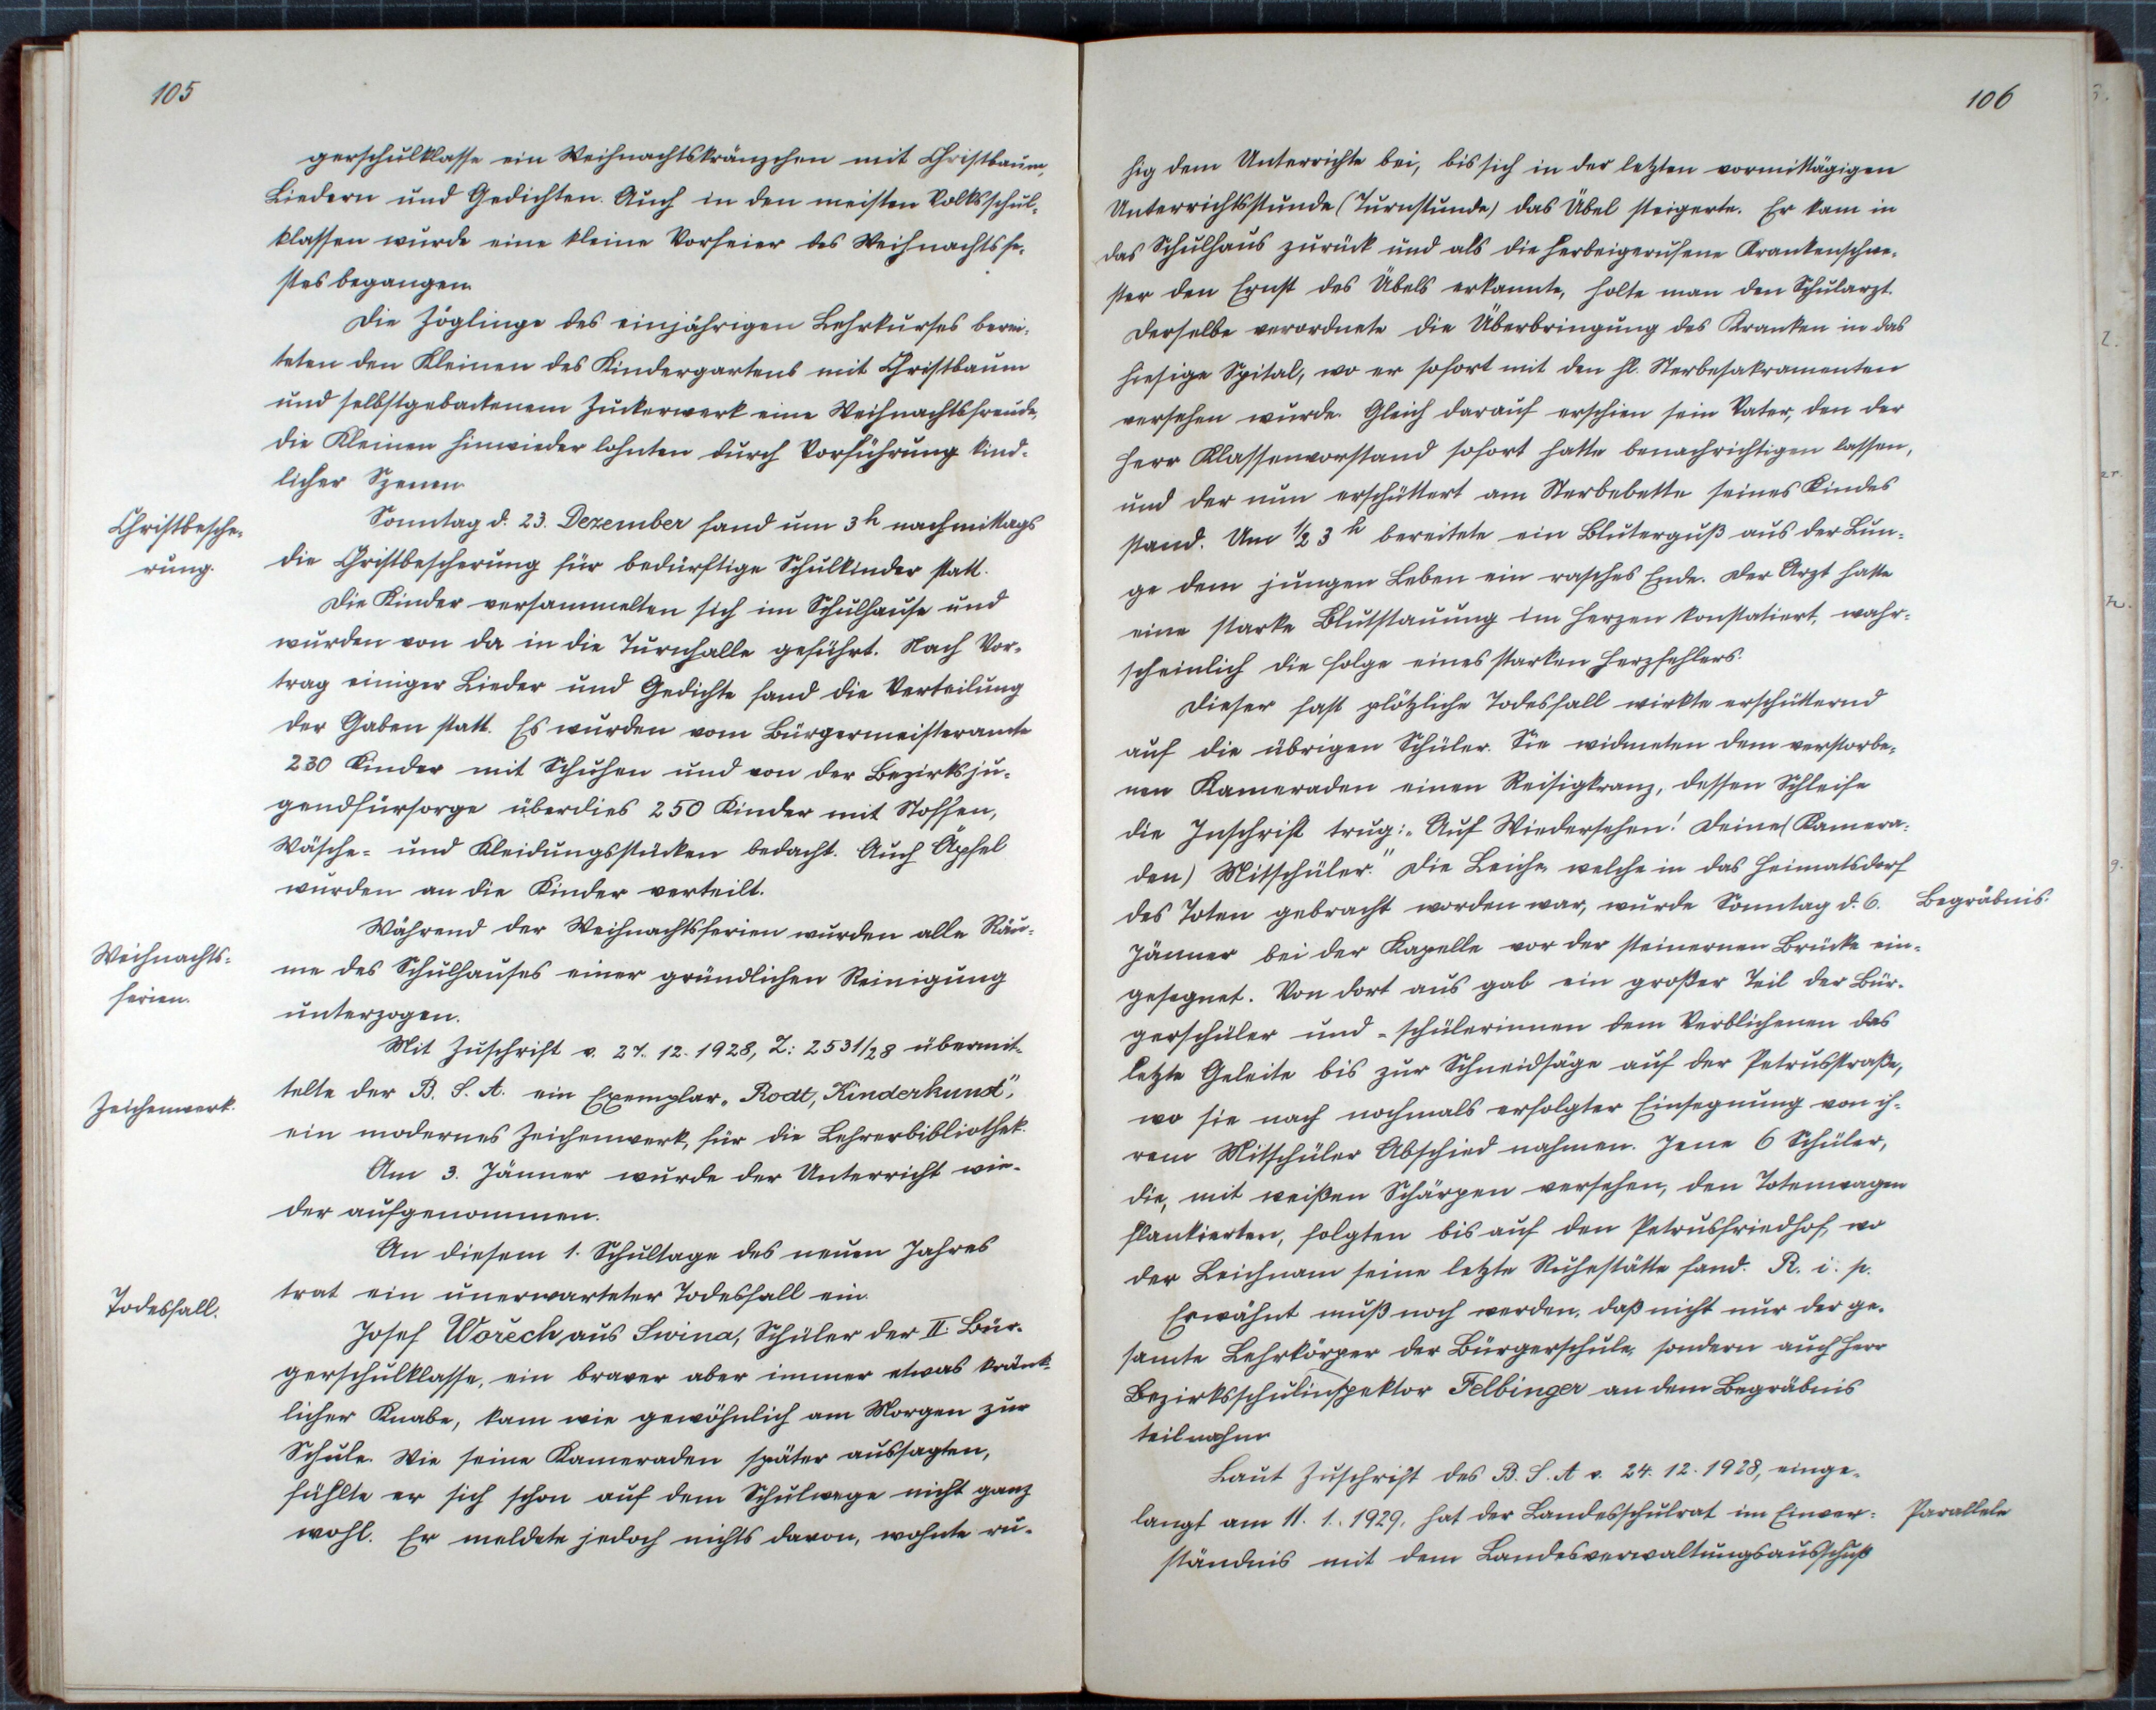 105
gerschulklasse ein Weihnachtskränzchen mit Christbaum,
Liedern und Gedichten. Auch in den meisten Volksschul-
klassen wurde eine kleine Vorfeier des Weihnachtsfe-
stes begangen.
Die Zöglinge des einjährigen Lehrkurses berei-
teten den Kleinen des Kindergartens mit Christbaum
und selbstgebackenem Zuckerwerk eine Weihnachtsfreude,
die Kleinen hinwieder lohnten durch Vorführung kind-
licher Szenen.
Christbesche-
rung.
Sonntag d. 23. Dezember fand um 3h nachmittags
die Christbescherung für bedürftige Schulkinder statt.
Die Kinder versammelten sich im Schulhause und
wurden von da in die Turnhalle geführt. Nach Vor-
trag einiger Lieder und Gedichte fand die Verteilung
der Gaben statt. Es wurden vom Bürgermeisteramte
230 Kinder mit Schuhen und von der Bezirksju-
gendfürsorge überdies 250 Kinder mit Stoffen,
Wäsche- und Kleidungsstücken bedacht. Auch Äpfel
wurden an die Kinder verteilt.
Weihnachts-
ferien.
Während der Weihnachtsferien wurden alle Räu-
me des Schulhauses einer gründlichen Reinigung
unterzogen.
Zeichenwerk.
Mit Zuschrift v. 27. 12. 1928, Z: 2531/28 übermit-
telte der B. S. A. ein Exemplar „Rodt, Kinderkunst",
ein modernes Zeichenwerk, für die Lehrerbibliothek.
Am 3. Jänner wurde der Unterricht wie-
der aufgenommen.
Todesfall.
An diesem 1. Schultage des neuen Jahres
trat ein unerwarteter Todesfall ein.
Josef Wořech, aus Swina, Schüler der II. Bür-
gerschulklasse, ein braver aber immer etwas kränk-
licher Knabe, kam wie gewöhnlich am Morgen zur
Schule. Wie seine Kameraden später aussagten,
fühlte er sich schon auf dem Schulwege nicht ganz
wohl. Er meldete jedoch nichts davon, wohnte ru-
106
hig dem Unterrichte bei, bis sich in der letzten vormittägigen
Unterrichtsstunde (Turnstunde) das Übel steigerte. Er kam in
das Schulhaus zurück und als die herbeigerufene Krankenschwe-
ster den Ernst des Übels erkannte, holte man den Schularzt.
Derselbe verordnete die Überbringung des Kranken in das
hiesige Spital, wo er sofort mit den hl. Sterbesakramenten
versehen wurde. Gleich darauf erschien sein Vater, den der
Herr Klassenvorstand sofort hatte benachrichtigen lassen,
und der nun erschüttert am Sterbebette seines Kindes
stand. Um 1/2 3h bereitete ein Bluterguß aus der Lun-
ge dem jungen Leben ein rasches Ende. Der Arzt hatte
eine starke Blutstauung im Herzen konstatiert, wahr-
scheinlich die Folge eines starken Herzfehlers.
Dieser fast plötzliche Todesfall wirkte erschütternd
auf die übrigen Schüler. Sie widmeten dem verstorbe-
nen Kameraden einen Reisigkranz, dessen Schleife
die Inschrift trug: „Auf Wiedersehen! Deine (Kamera-
den) Mitschüler." Die Leiche, welche in das Heimatsdorf
des Toten gebracht worden war, wurde Sonntag d. 6.
Begräbnis.
Jänner bei der Kapelle vor der steinernen Brücke ein-
gesegnet. Von dort aus gab ein großer Teil der Bür-
gerschüler und -schülerinnen dem Verblichenen das
letzte Geleite bis zur Schneidsäge auf der Petrusstraße,
wo sie nach nochmals erfolgter Einsegnung von ih-
rem Mitschüler Abschied nahmen. Jene 6 Schüler,
die, mit weißen Schärpen versehen, den Totenwagen
flankierten, folgten bis auf den Petrusfriedhof, wo
der Leichnam seine letzte Ruhestätte fand. R. i. p.
Erwähnt muß noch werden, daß nicht nur der ge-
samte Lehrkörper der Bürgerschule, sondern auch Herr
Bezirksschulinspektor Felbinger an dem Begräbnis
teilnahm.
Laut Zuschrift des B. S. A v. 24. 12. 1928, einge-
langt am 11. 1. 1929, hat der Landesschulrat im Einver-
Parallele
ständnis mit dem Landesverwaltungsausschuß